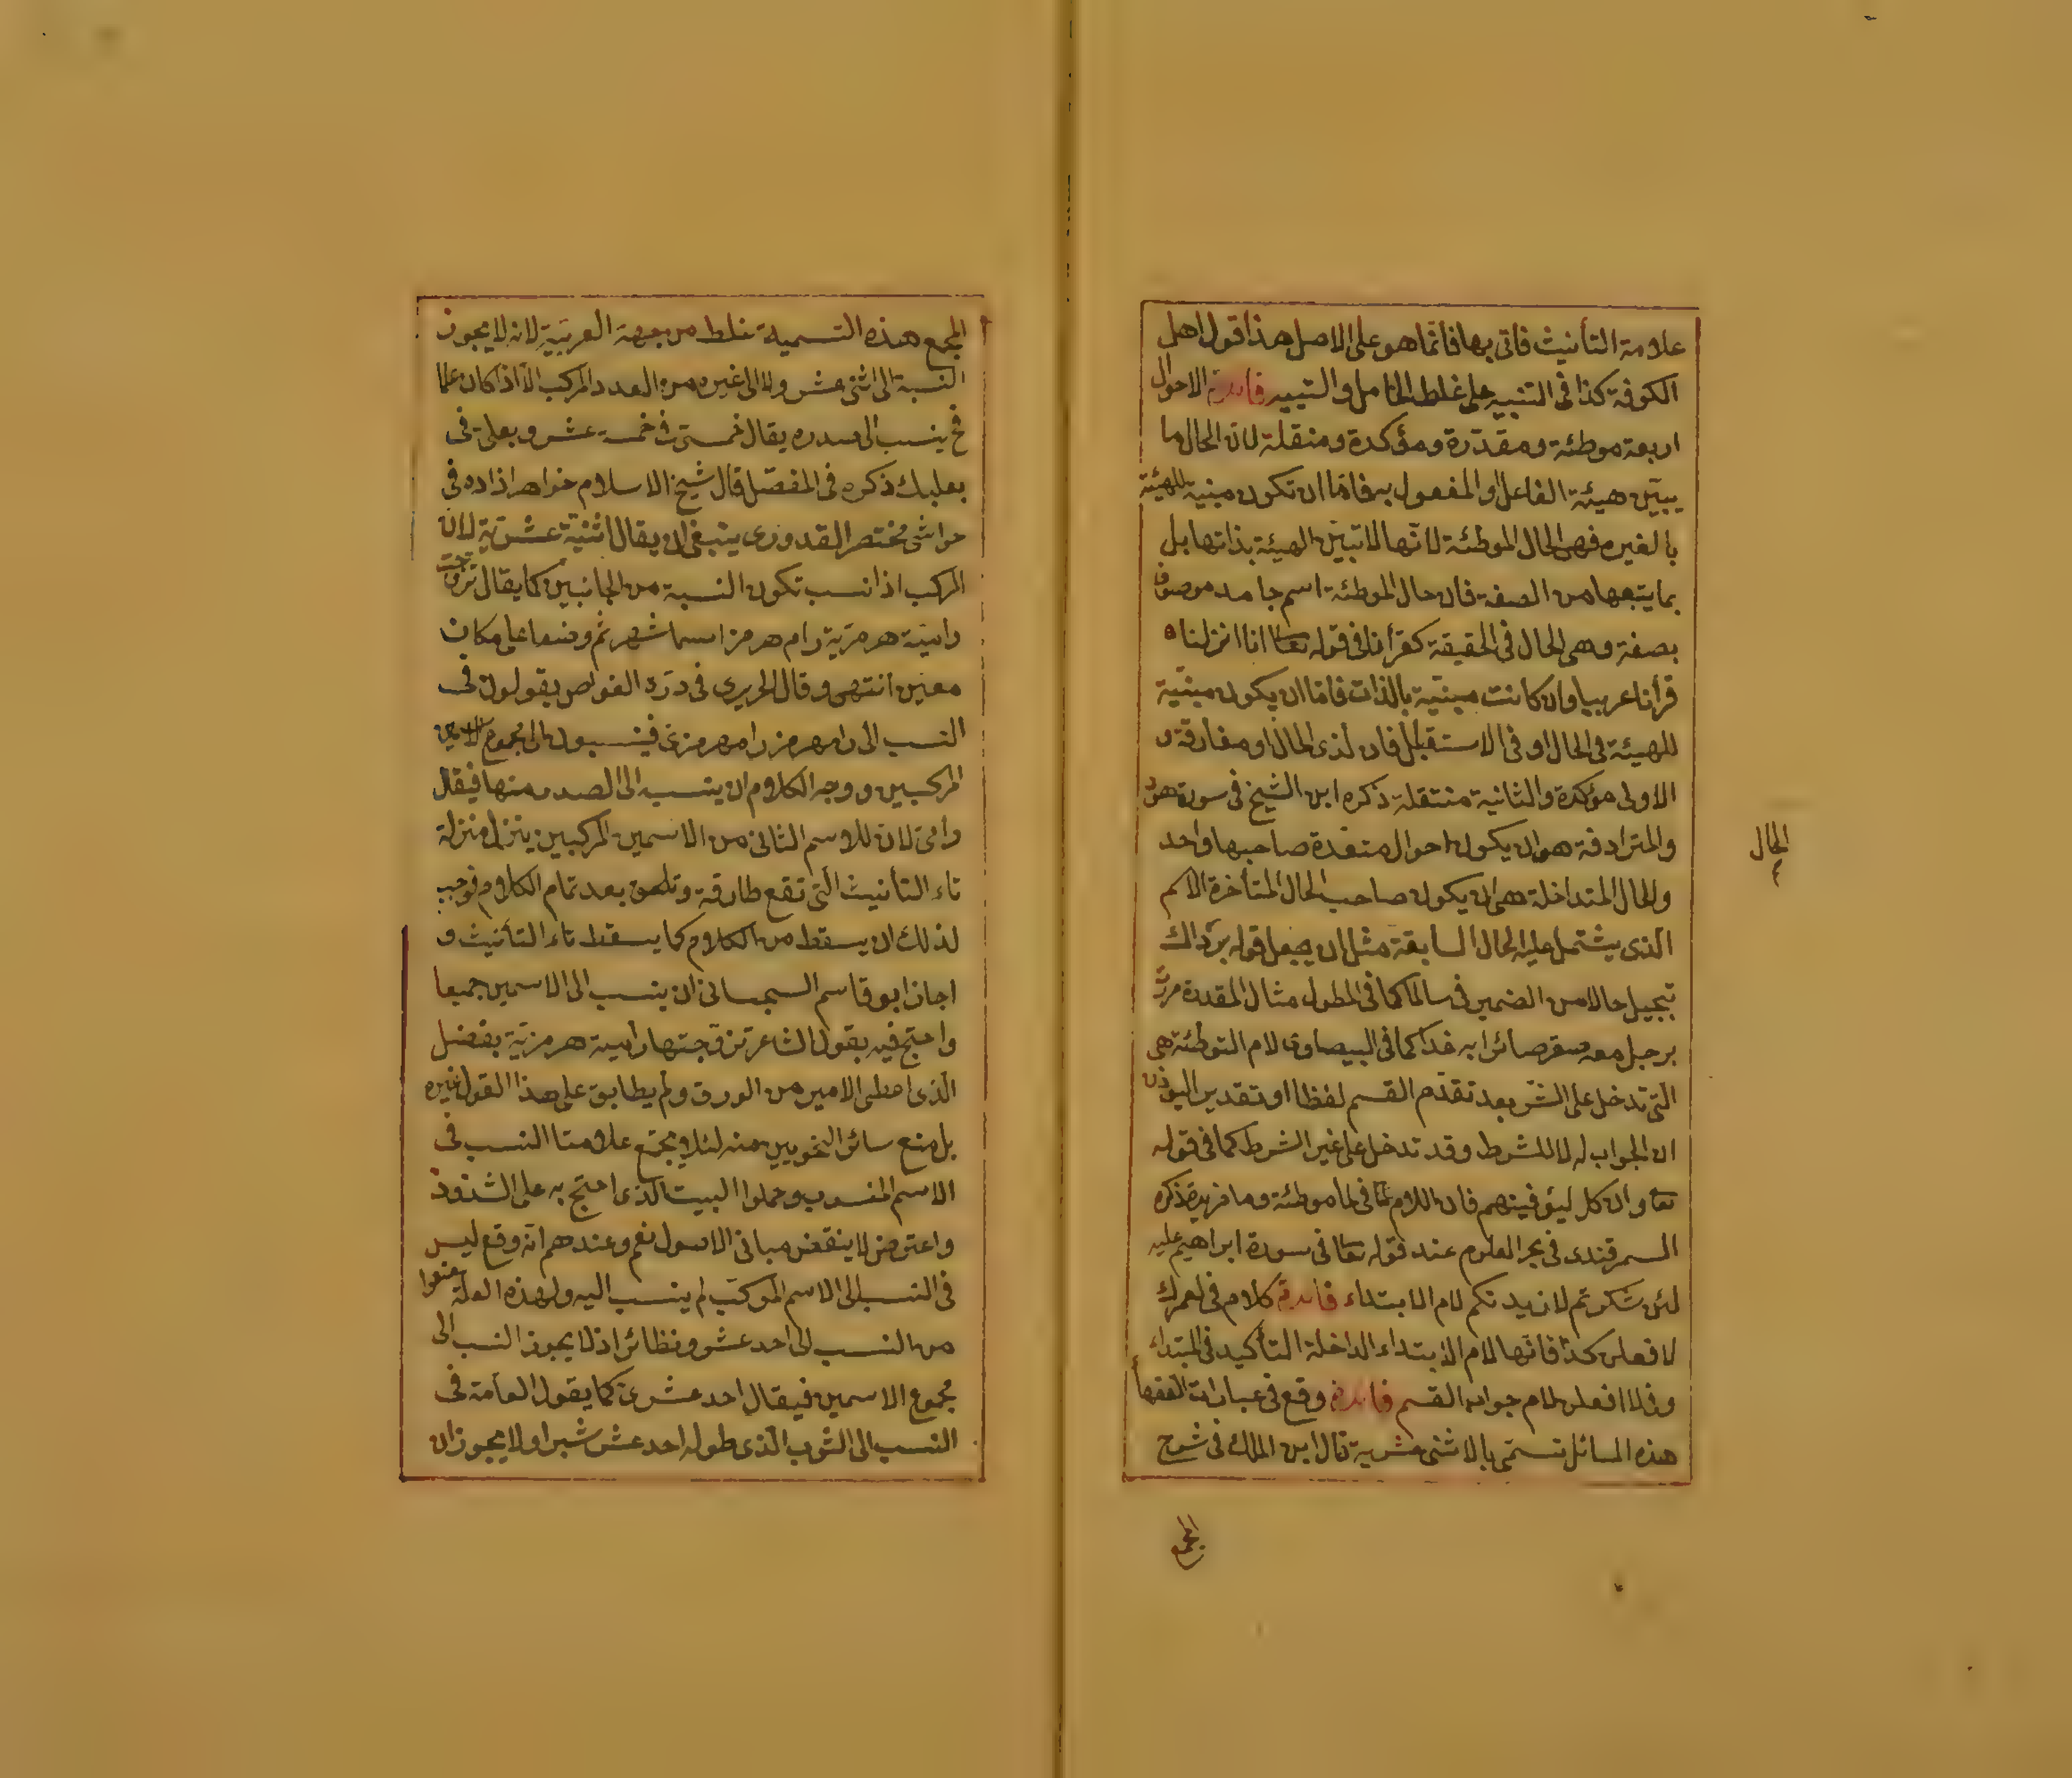 علامة التأنيث فاتى بها فأنما هو على الاصل هذا قول اهل
الكوفة كذا فى التنبيه على غلط الخامل والنبيه فائدة الاحوال
اربعة موطئة ومقدّرة ومؤكدة ومنتقلة لان الحال ما
يبيّن هيئة الفاعل او المفعول به فامّا ان تكون مبنية للهيئة
بالغيره فهى الحال الموطئة لانّها لا تبيّن الهيئة بذاتها بل
بما يتبعها من الصفة فان حال الموطئة اسم جامد موصوف
بصفة وهى الحال فى الحقيقة كقرأنا فى قوله تعا انا انزلناه
قرأنا عربيا وان كانت مبيّنة بالذات فامّا ان يكون مبيّنة
للهيئة فى الحال او فى الاستقبال فان لذى الحال او مفارقة و
الاولى مؤكدة والثانية منتقلة ذكره ابن الشيخ فى سورة هود
والمترادفة هو ان يكون احوال متعددة صاحبها واحد
والحال المتداخلة هى ان يكون صاحب الحال المتأخرة الاسم
الّذى يشتمل عليه الحال السابقة مثل ان يجعل قوله برّداك
تبجيل حالا من الضمير فى سالما كما فى المطول مثال المقدرة مررت
برجل معه صقر صائرا به غدا كما فى البيضاوى لام التوطئة هى
التى تدخل على الشر بعد تقدّم القسم لفظا او تقديرا ليوذن
ان الجواب له لا للشرط وقد تدخل على غير الشرط كما فى قوله
تعا وان كل ليوفينهم فان اللام فى لما موطئة وما مزيدة ذكره
السمرقندى فى بحر العلوم عند قوله تعا فى سورة ابراهيم عليه
لئن شكرتم لازيدنكم لام الابتداء فائدة كلام فى لعمرك
لافعلن كذا فانّها لام الابتداء الداخلة التأكيد فى المبتداء
وفى لا افعلن لام جواب القسم فائدة وقع فى عبارات الفقها
هذه المسائل تسمّى بالاثنى عشرية قال ابن الملك فى شرح
المجمع
الحال
المجمع هذه التسمية غلط من جهة العربية لانه لا يجوز
النسبة الى اثنى عشر ولا الى غيره من العدد المركب الّا اذا كان علما
فح ينسب الى صدره يقال خمسىّ فى خمسة عشر وبعلى فى
بعلبك ذكره فى المفصّل قال شيخ الاسلام خواهرزاده فى
حواشى مختصر القدورى ينبغى ان يقال اثنيّة عشريّة لان
المركب اذا نسب تكون النسبة من الجانبين كما يقال تزوجت
رامية هرمزيّة رام هرمز اسما شهر ثم وضعا على مكان
معين انتهى وقال الحريرى فى درّة الغواص يقولون فى
النسب الى رامهرمز رامهرمزى فينسبون الى مجموع الاسمين
المركبين ووجه الكلام ان ينسب الى الصدر منها فيقال
رامى لان للاسم الثانى من الاسمين المركبين ينزل منزلة
تاء التأنيث الّتى تقع طارقة وتلحق بعد تمام الكلام فوجب
لذلك ان يسقط من الكلام كما يسقط تاء التأنيث و
اجاز ابو قاسم السجستانى ان ينسب الى الاسمين جميعا
واحتج فيه بقول الشاعر تزوّجتها رامية هرمزيّة بفضل
الّذى اعطى الامير من الورق ولم يطابق على هذا القول غيره
بل منع سائر النحويين منه لئلا يجتمع علامتا النسب فى
الاسم المنسوب وحملوا البيت الّذى احتج به على الشذوذ
واعترض لا ينقض مبانى الاصول نعم وعندهم انّه وقع ليس
فى النسب الى الاسم المركّب لم ينسب اليه ولهذه العلة منعوا
من النسب الى احد عشر ونظائر اذ لا يجوز النسب الى
مجموع الاسمين فيقال احد عشرىّ كما يقول العامّة فى
النسب الى الثوب الّذى طوله احد عشر شبرا ولا يجوز ان